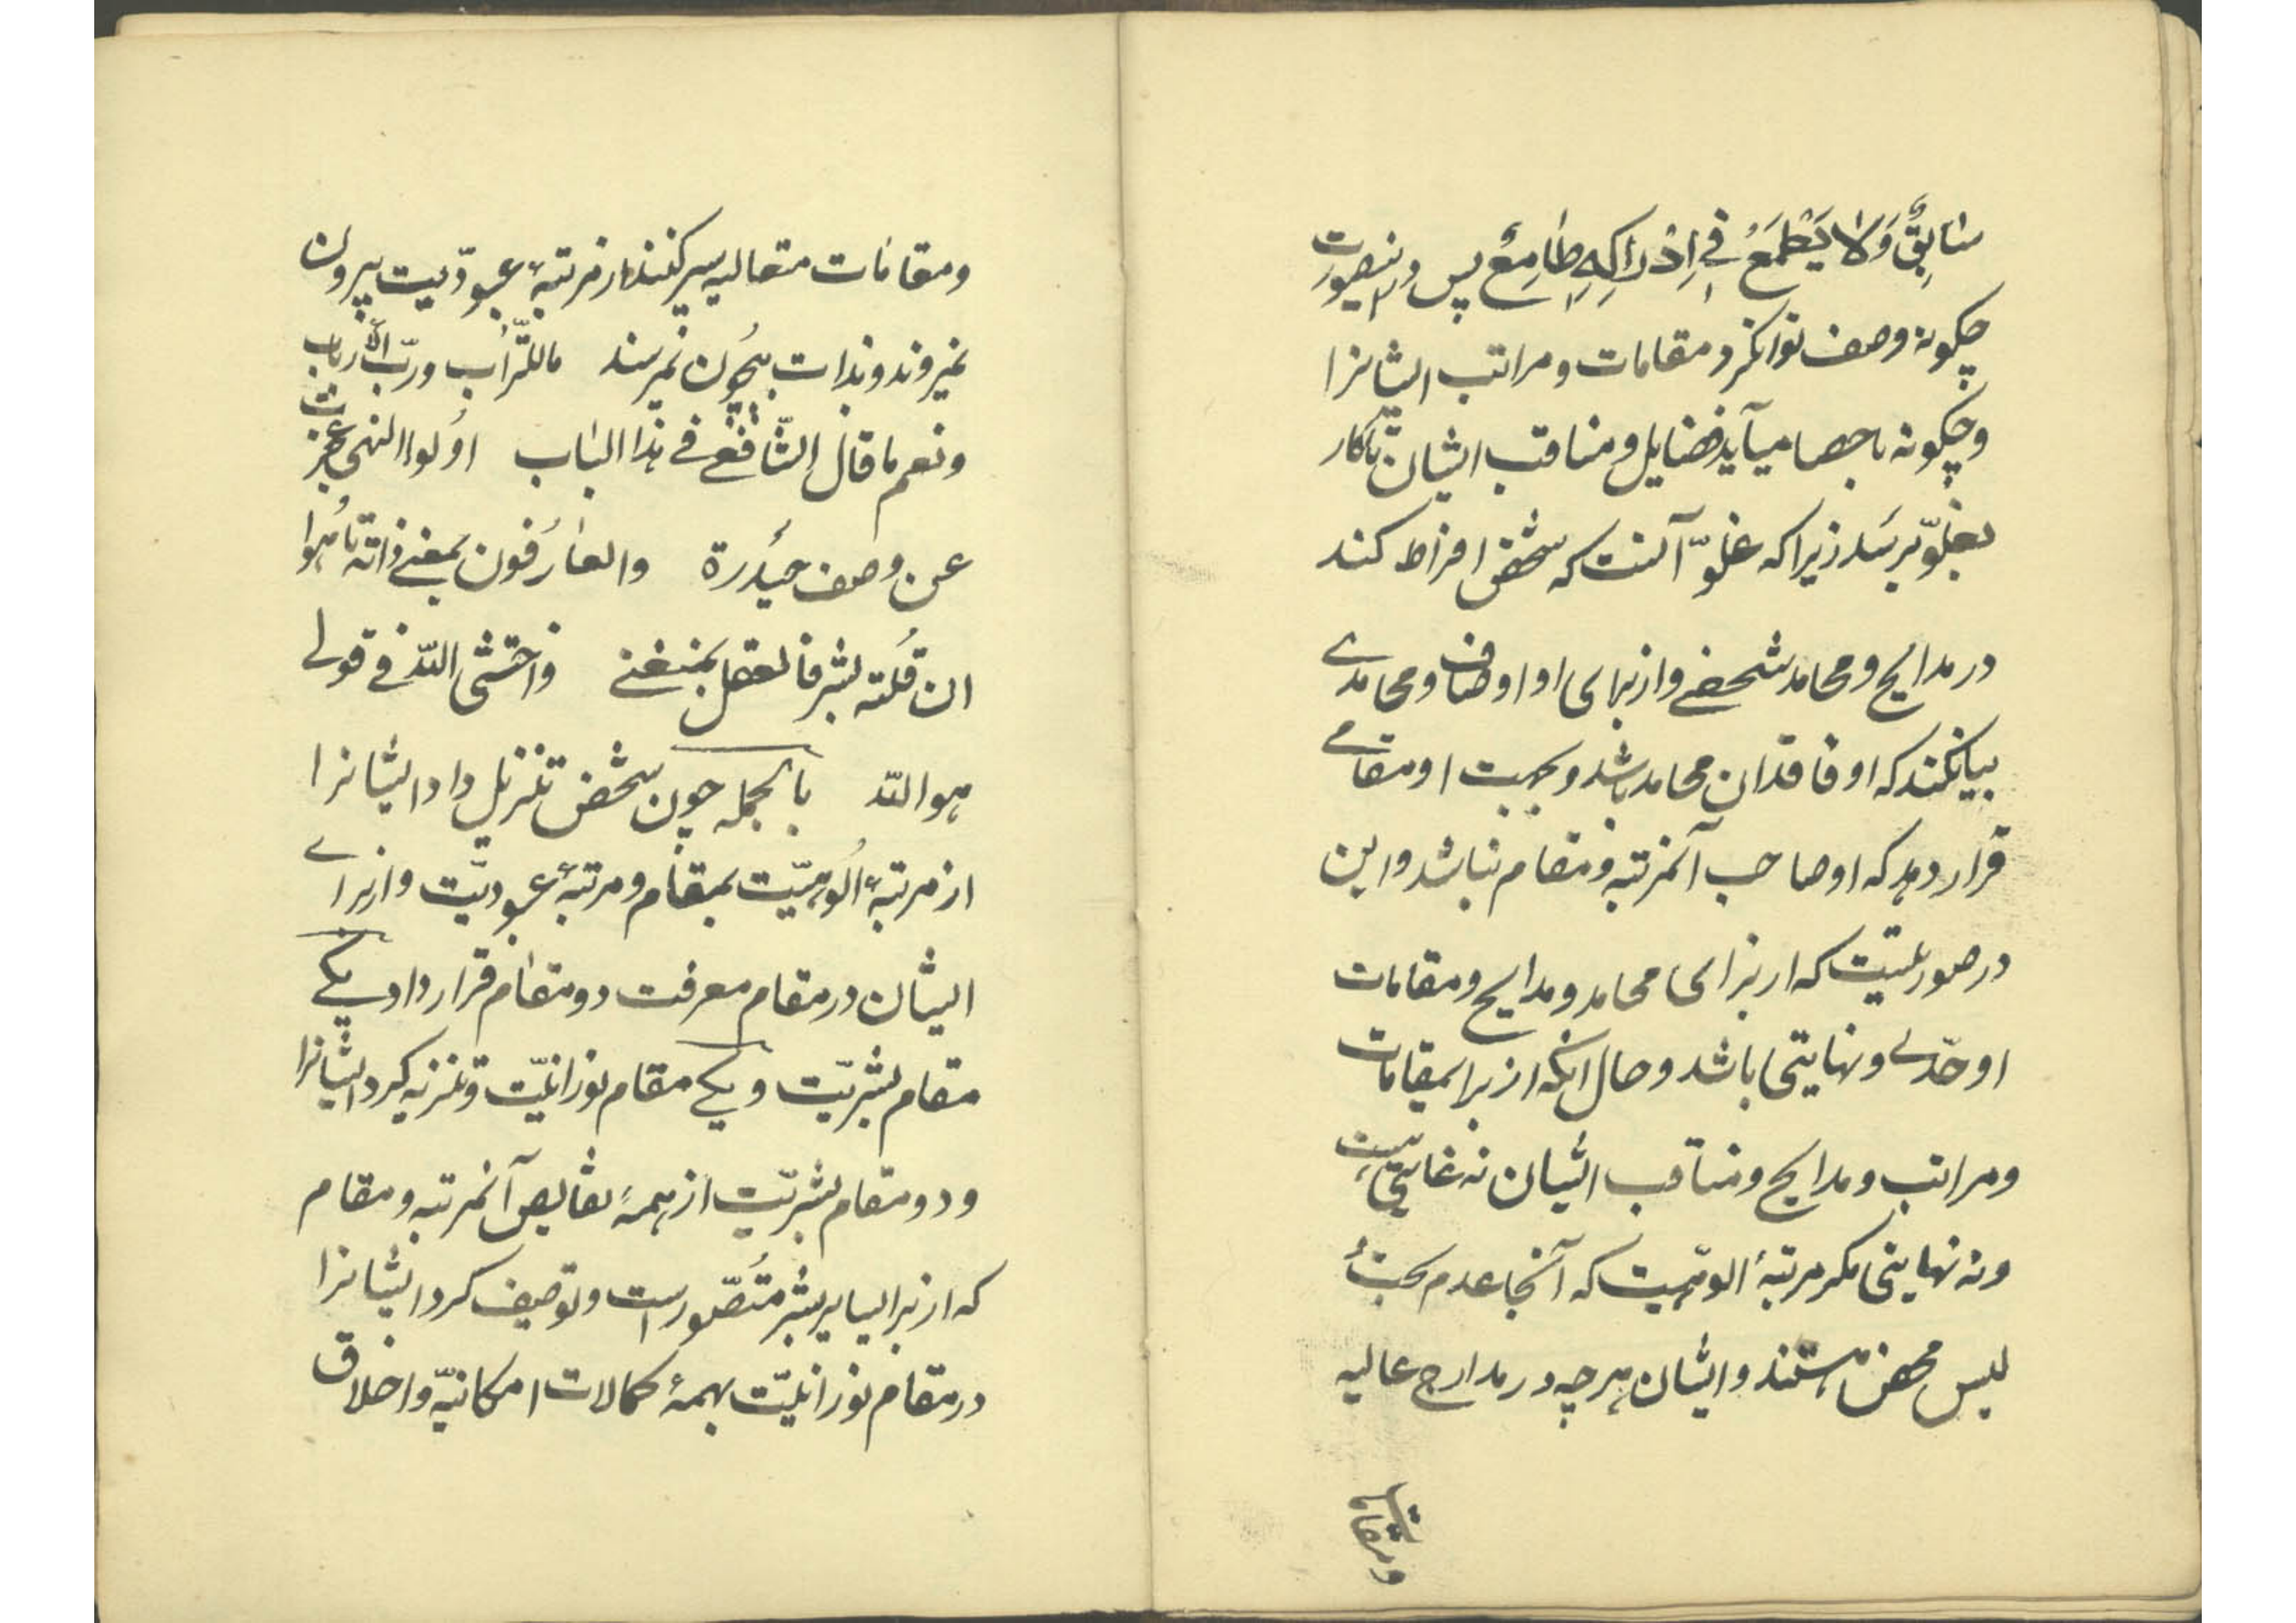 سَابِقٌ وَلَا يَطْمَعُ فِي اِدْرَاكِهِ طَامِعٌ پس در اینصورت
چگونه وصف توانکرد مقامات و مراتب ایشانرا
و چگونه باحصا میآید فضایل و مناقب ایشان تا کار
بغلوّ برسد زیرا که غلوّ آنست که شخص افراط کند
در مدایح و محامد شخصی و از برای او اوصاف و محامدی
بیانکند که او فاقد ان محامد باشد و بجهت او مقامی
قرار دهد که او صاحب آنمرتبه و مقام نباشد و این
در صورتیست که از برای محامد و مدایح و مقامات
او حدّی و نهایتی باشد و حال انکه از برای مقامات
و مراتب و مدایح و مناقب ایشان نه غایتی است
و نه نهایتی مکر مرتبهٔ الوهیت که آنجا عدم بحت
لیس محض هستند و ایشان هر چه در مدارج عالیه
و مقامات
و مقامات متعالیه سیر کنند از مرتبهٔ عبودّیت بیرون
نمیروند و بذات بیچون نمیرسند ماللتّراب و ربّ الأرباب
و نعم ما قال الشّافعی فی هذا الباب اولوا النهی عجزت
عن وصف حیدرة والعارفون بمعنی ذاته تاهوا
ان قلته بشر فالعقل یمنعنی واختشی اللّه فی قولی
هو اللّه بالجمله چون شخص تنزیل داد ایشانرا
از مرتبهٔ الُوهیّت بمقام و مرتبهٔ عبودیّت و از برای
ایشان در مقام معرفت دو مقام قرار داد یکی
مقام بشریّت و یکی مقام نورانیّت و تنزیه کرد ایشانرا
و دو مقام بشریّت از همهٔ نقایص آنمرتبه و مقام
که از برا سایر بشر مُتصّور است و توصیف کرد ایشانرا
در مقام نورانیّت بهمهٔ کمالات امکانیّه و اخلاق